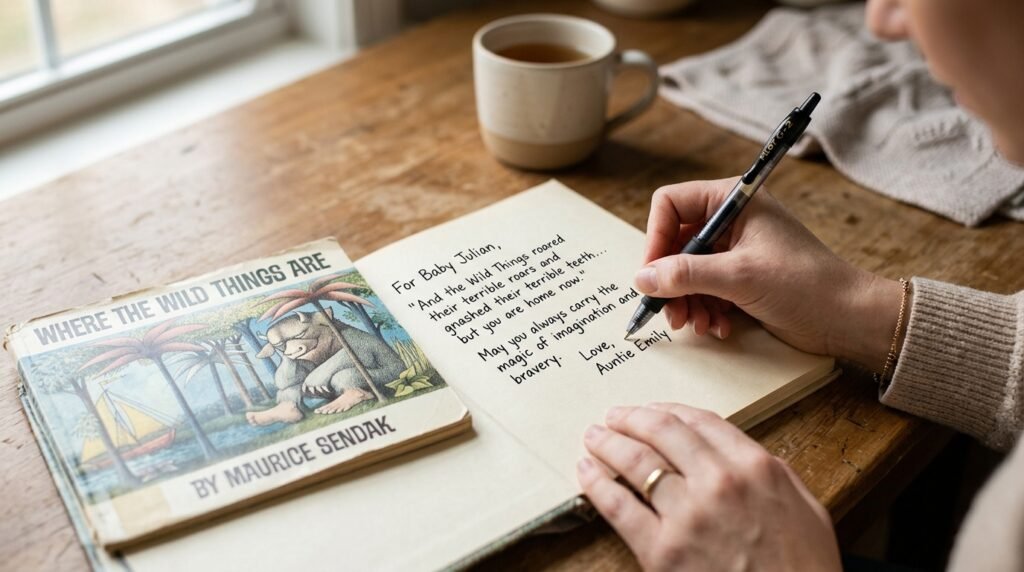 WHERE THE WILD THINGS ARE
BY MAURICE SENDAK
For Baby Julian,
"And the Wild Things roared
their terrible roars and
gnashed their terrible teeth...
but you are home now."
May you always carry the
magic of imagination and
bravery.
Love,
Auntie Emily